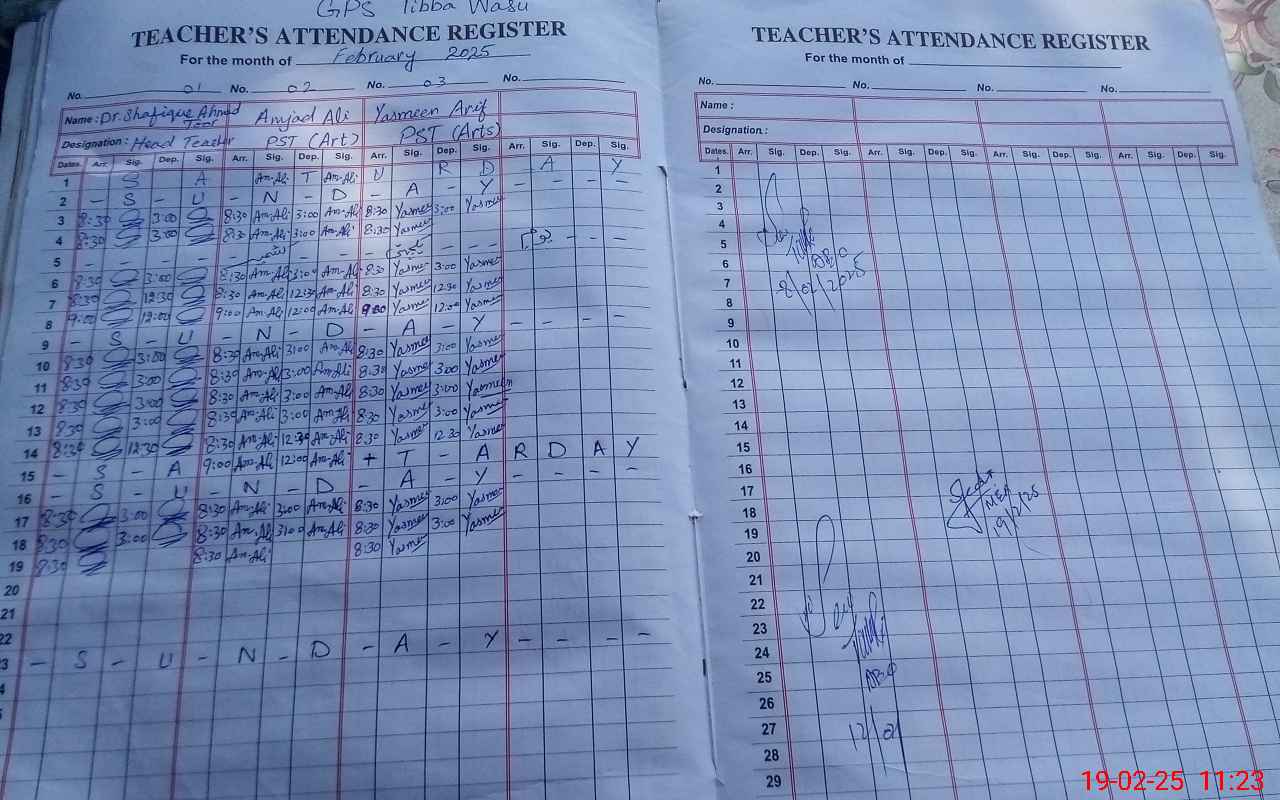 GPS Tibba Wasu
TEACHER'S ATTENDANCE REGISTER
For the month of February 2025
No. 01 No. 02 No. 03 No.
Name : Dr. Shafique Ahmad Toor Amjad Ali Yasmeen Arif
Designation : Head Teacher PST (Art) PST (Arts)
Dates. Arr. Sig. Dep. Sig. Arr. Sig. Dep. Sig. Arr. Sig. Dep. Sig. Arr. Sig. Dep. Sig.
1 S A Am-Ali T Am-Ali U R D A Y
2 - S - U - N - D - A - Y - - - -
3 8:30 3:00 8:30 Am-Ali 3:00 Am-Ali 8:30 Yasmeen 3:00 Yasmeen
4 8:30 3:00 8:30 Am-Ali 3:00 Am-Ali 8:30 Yasmeen
5 - - - - - - - - - - - -
6 8:30 3:00 8:30 Am-Ali 3:00 Am-Ali 8:30 Yasmeen 3:00 Yasmeen
7 8:30 12:30 8:30 Am-Ali 12:30 Am-Ali 8:30 Yasmeen 12:30 Yasmeen
8 9:00 12:00 9:00 Am-Ali 12:00 Am-Ali 9:00 Yasmeen 12:00 Yasmeen
9 - S - U - N - D - A - Y - - - -
10 8:30 3:00 8:30 Am-Ali 3:00 Am-Ali 8:30 Yasmeen 3:00 Yasmeen
11 8:30 3:00 8:30 Am-Ali 3:00 Am-Ali 8:30 Yasmeen 3:00 Yasmeen
12 8:30 3:00 8:30 Am-Ali 3:00 Am-Ali 8:30 Yasmeen 3:00 Yasmeen
13 8:30 3:00 8:30 Am-Ali 3:00 Am-Ali 8:30 Yasmeen 3:00 Yasmeen
14 8:30 12:30 8:30 Am-Ali 12:30 Am-Ali 8:30 Yasmeen 12:30 Yasmeen
15 - S - A 9:00 Am-Ali 12:00 Am-Ali + T - A R D A Y
16 - S - U - N - D - A - Y - - - -
17 8:30 3:00 8:30 Am-Ali 3:00 Am-Ali 8:30 Yasmeen 3:00 Yasmeen
18 8:30 3:00 8:30 Am-Ali 3:00 Am-Ali 8:30 Yasmeen 3:00 Yasmeen
19 8:30 8:30 Am-Ali 8:30 Yasmeen
20
21
22
3 - S - U - N - D - A - Y - - - - -
4
TEACHER'S ATTENDANCE REGISTER
For the month of
No. No. No. No.
Name :
Designation :
Dates. Arr. Sig. Dep. Sig. Arr. Sig. Dep. Sig. Arr. Sig. Dep. Sig. Arr. Sig. Dep. Sig.
1
2
3
4
5
6
7 8/02/2025
8
9
10
11
12
13
14
15
16
17 MEA
18 19/2/25
19
20
21
22
23
24
25
26
27
28
29
19-02-25 11:23